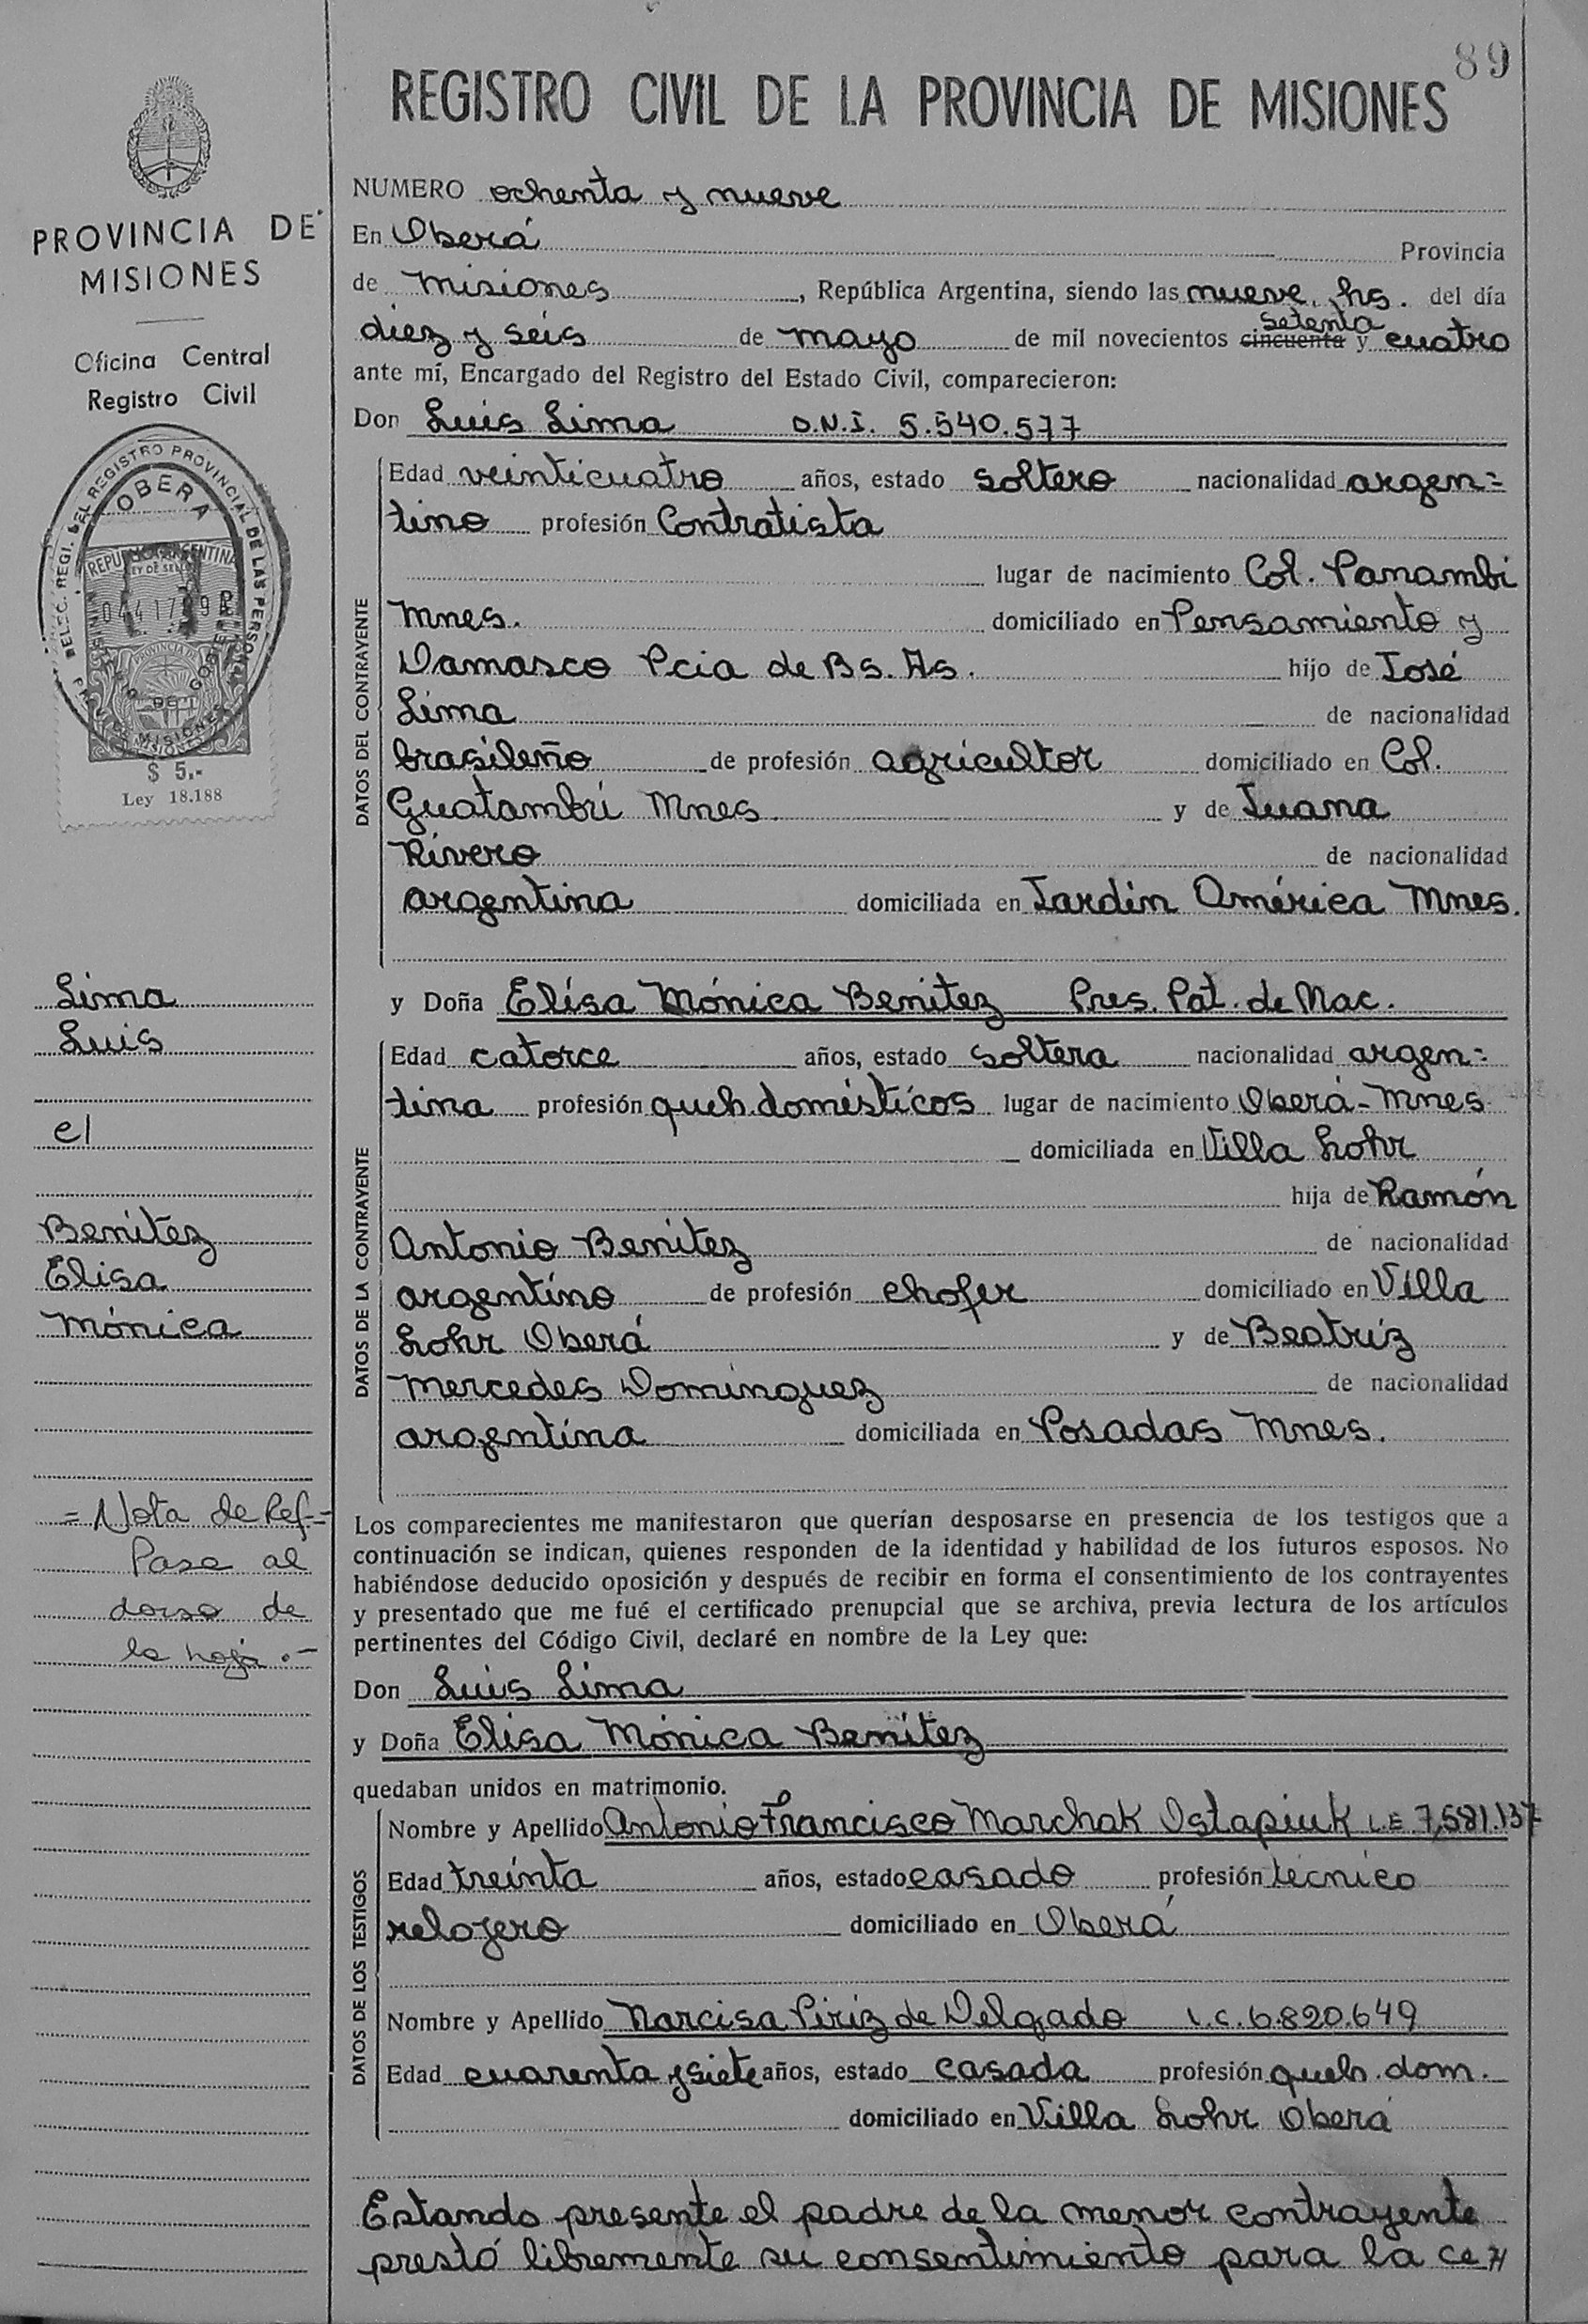 89
REGISTRO CIVIL DE LA PROVINCIA DE MISIONES
PROVINCIA DE
MISIONES
Oficina Central
Registro Civil
DEL REGISTRO PROVINCIAL DE LAS PERSONAS
OBERA
REPUBLICA ARGENTINA
LEY DE SELLOS
MISIONES
$ 5.-
Ley 18.188
NUMERO ochenta y nueve
En Oberá Provincia
de Misiones, República Argentina, siendo las nueve hs. del día
setenta
diez y seis de mayo de mil novecientos cincuenta y cuatro
ante mí, Encargado del Registro del Estado Civil, comparecieron:
Don Luis Lima D.N.I. 5.540.577
DATOS DEL CONTRAYENTE
Edad veinticuatro años, estado soltero nacionalidad argen=
tino profesión Contratista
lugar de nacimiento Col. Panambi
Mnes. domiciliado en Pensamiento y
Damasco Pcia de Bs. As. hijo de José
Lima de nacionalidad
brasileño de profesión agricultor domiciliado en Col.
Guatambú Mnes. y de Juana
Rivero de nacionalidad
argentina domiciliada en Jardín América Mnes.
Lima
Luis
el
Benítez
Elisa
Mónica
y Doña Elisa Mónica Benitez Pres. Pat. de Nac.
DATOS DE LA CONTRAYENTE
Edad catorce años, estado soltera nacionalidad argen=
tina profesión queh. domésticos lugar de nacimiento Oberá - Mnes
domiciliada en Villa Lohr
hija de Ramón
Antonio Benitez de nacionalidad
argentino de profesión chofer domiciliado en Villa
Lohr Oberá y de Beatriz
Mercedes Dominguez de nacionalidad
argentina domiciliada en Posadas Mnes.
= Nota de Ref.=
Pase al
dorso de
la hoja.-
Los comparecientes me manifestaron que querían desposarse en presencia de los testigos que a
continuación se indican, quienes responden de la identidad y habilidad de los futuros esposos. No
habiéndose deducido oposición y después de recibir en forma el consentimiento de los contrayentes
y presentado que me fué el certificado prenupcial que se archiva, previa lectura de los artículos
pertinentes del Código Civil, declaré en nombre de la Ley que:
Don Luis Lima
y Doña Elisa Mónica Benítez
quedaban unidos en matrimonio.
DATOS DE LOS TESTIGOS
Nombre y Apellido Antonio Francisco Marchak Ostapiuk L.E 7.581.137
Edad treinta años, estado casado profesión técnico
relojero domiciliado en Oberá
Nombre y Apellido Narcisa Piriz de Delgado L.C. 6.820.649
Edad cuarenta y siete años, estado casada profesión queh. dom.
domiciliado en Villa Lohr Oberá
Estando presente el padre de la menor contrayente
prestó libremente su consentimiento para la ce//